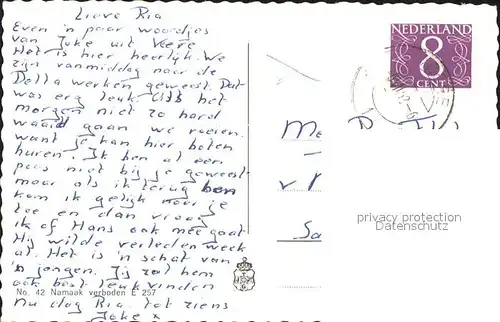 Lieve Ria
Even 'n paar woordjes
van Joke uit Veere
Het is hier heerlijk. We
zijn vanmiddag naar de
Delta werken geweest. Dat
was erg leuk. Als het
morgen niet zo hard
waaid gaan we roeien.
want je kan hier boten
huren. Ik ben al een
poos niet bij je geweest
maar als ik terug ben
kom ik gelijk naar je
toe en dan vraag
ik of Hans ook mee gaat
Hij wilde verleden week
al. Het is 'n schat van
'n jongen. Jij zal hem
ook best leuk vinden
No. 42 Namaak verboden E 257
Nu dag Ria tot ziens
Joke x
NEDERLAND
8
CENT
privacy protection
Datenschutz